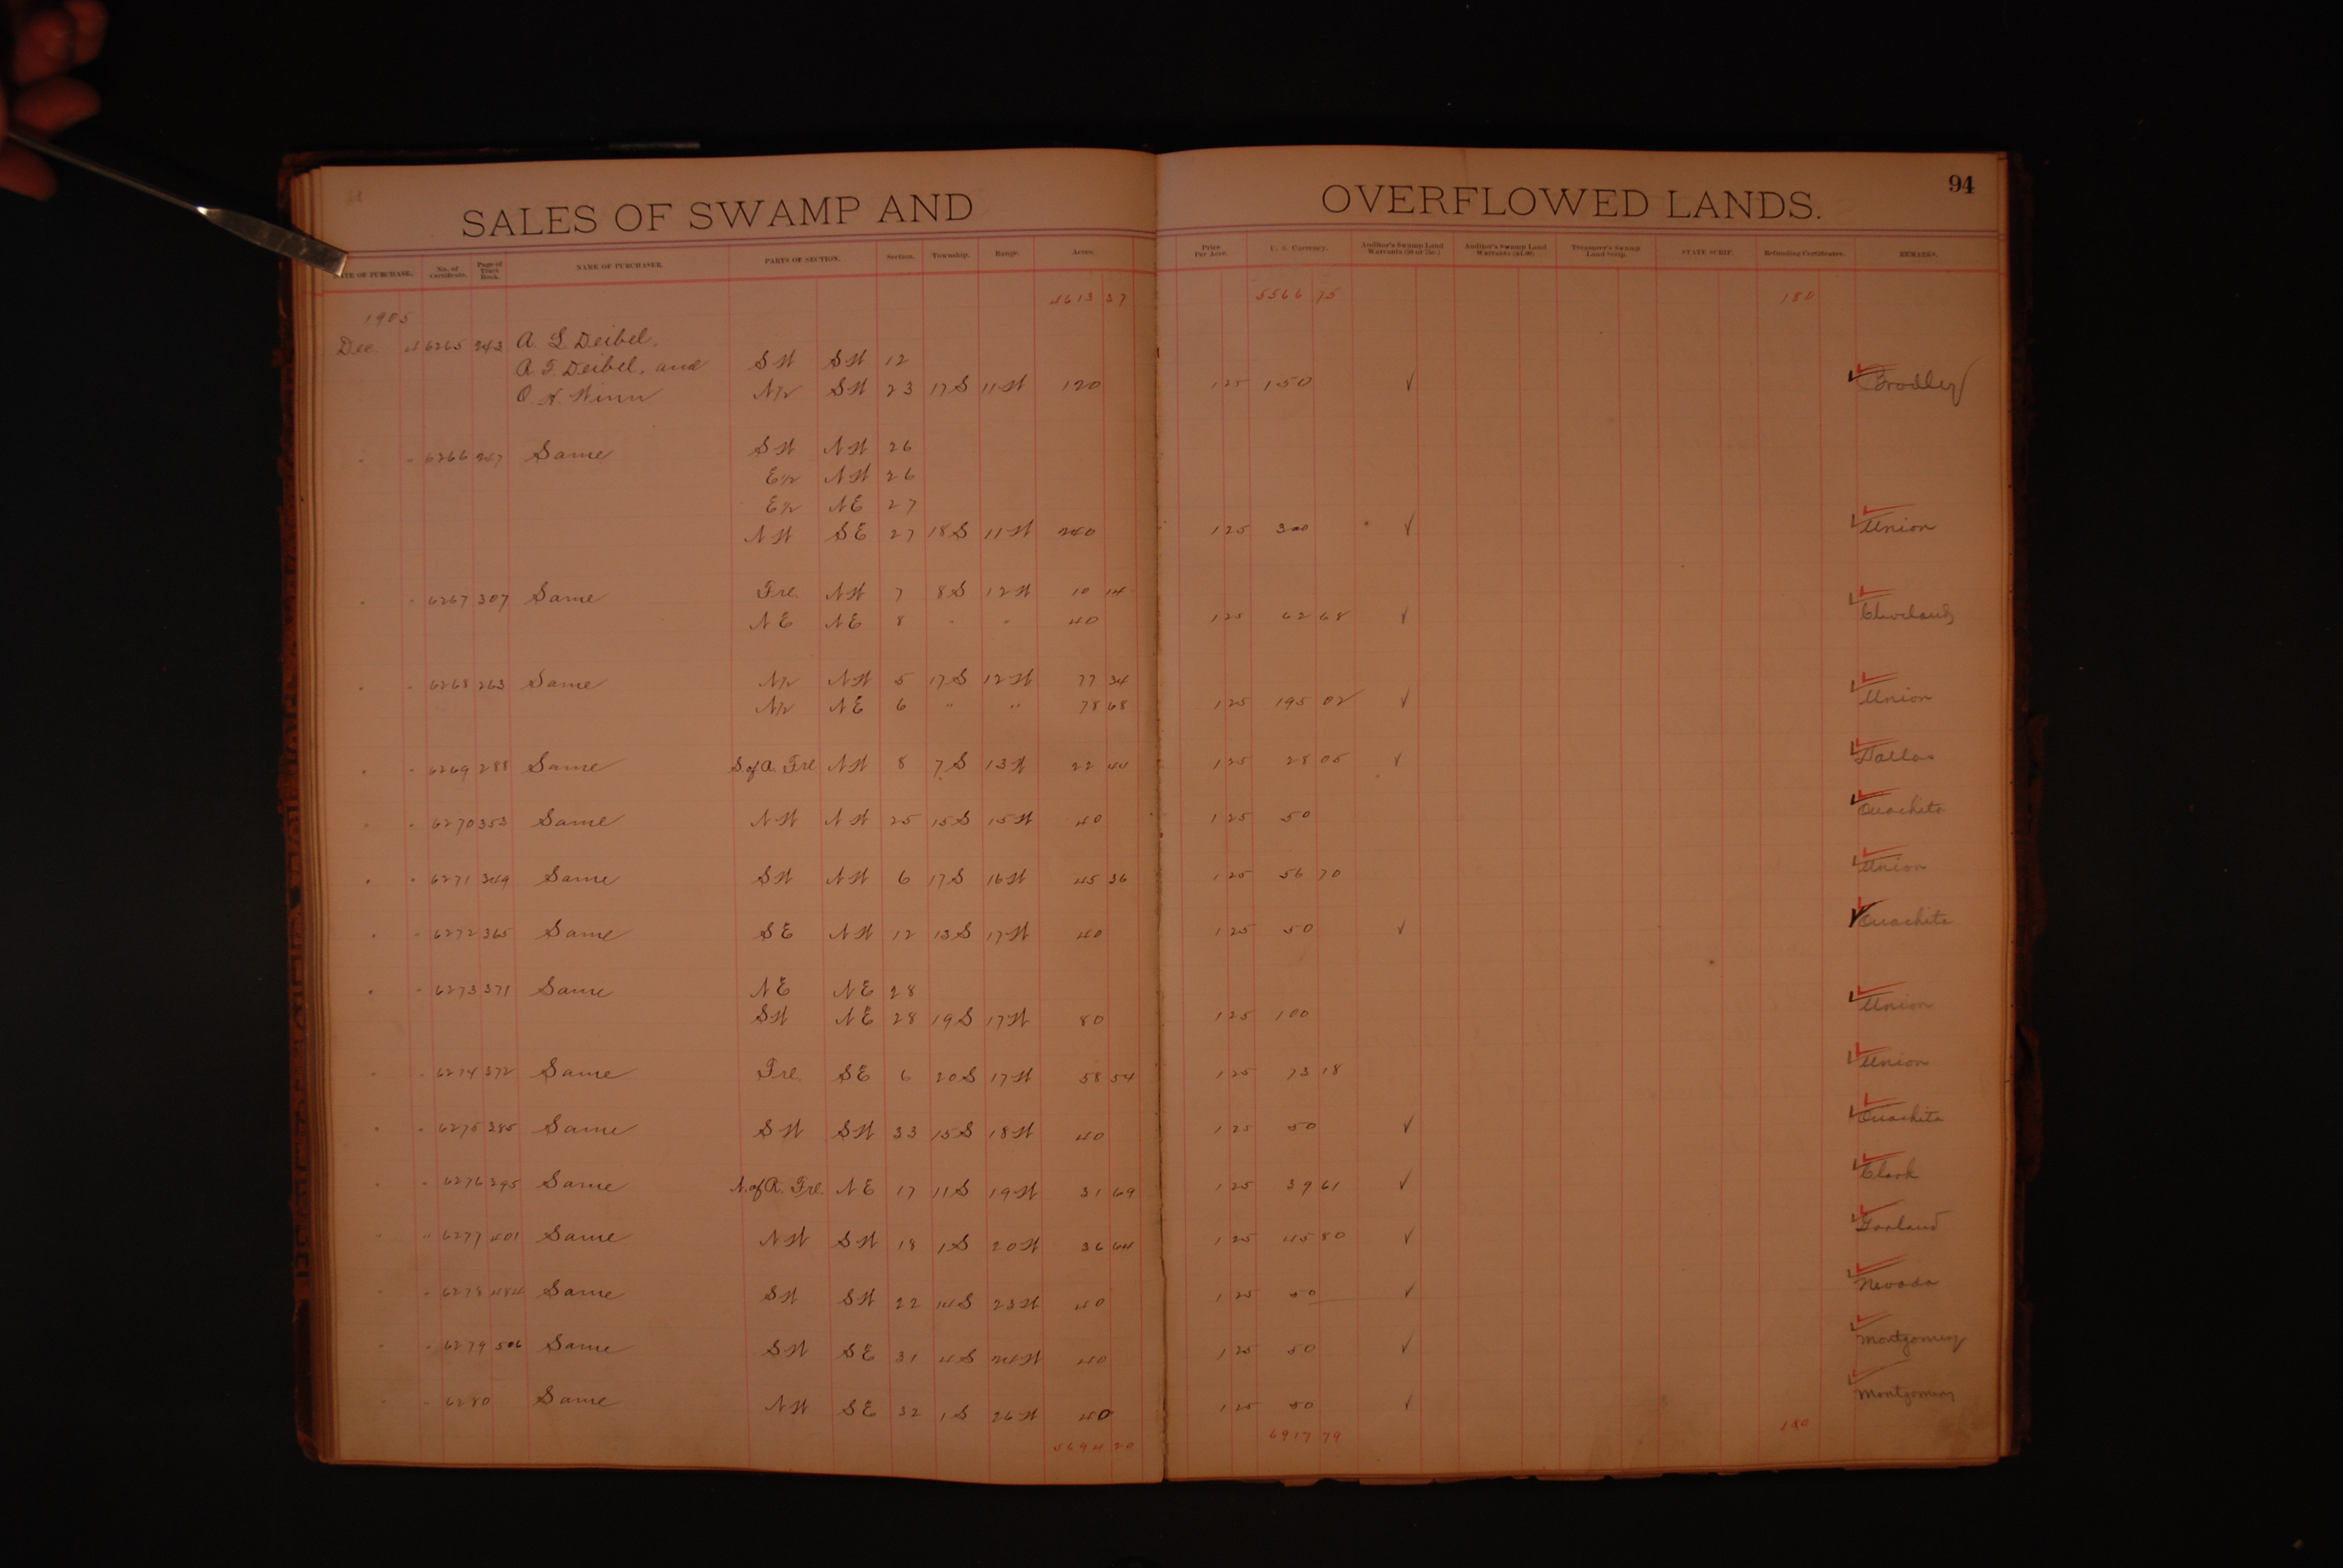 SALES OF SWAMP AND OVERFLOWED LANDS. 94
DATE OF PURCHASE. No. of Certificate. Page of Tract Book. NAME OF PURCHASER. PARTS OF SECTION. Section. Township. Range. Acres. Price Per Acre. U. S. Currency. Auditor's Swamp Land Warrants (50 or 75c.) Auditor's Swamp Land Warrants ($1.00) Treasurer's Swamp Land Scrip. STATE SCRIP. Refunding Certificates. REMARKS.
4613 37 5566 75 180
1905
Dec. 4 6265 243 A. L. Deibel,
A. F. Deibel, and SW SW 12
O. H. Winn N½ SW 23 17S 11W 120 1 25 150 ✓ Bradley
" " 6266 247 Same SW NW 26
E½ NW 26
E½ NE 27
NW SE 27 18S 11W 240 1 25 300 ✓ Union
" " 6267 307 Same Frl. NW 7 8S 12W 10 14
NE NE 8 " " 40 1 25 62 68 ✓ Cleveland
" " 6268 263 Same N½ NW 5 17S 12W 77 34
N½ NE 6 " " 78 68 1 25 195 02 ✓ Union
" " 6269 288 Same S. of A. Frl. NW 8 7S 13W 22 44 1 25 28 05 ✓ Dallas
" " 6270 353 Same NW NW 25 15S 15W 40 1 25 50 Ouachita
" " 6271 349 Same SW NW 6 17S 16W 45 36 1 25 56 70 Union
" " 6272 365 Same SE NW 12 13S 17W 40 1 25 50 ✓ Ouachita
" " 6273 371 Same NE NE 28
SW NE 28 19S 17W 80 1 25 100 Union
" " 6274 372 Same Frl. SE 6 20S 17W 58 54 1 25 73 18 Union
" " 6275 385 Same SW SW 33 15S 18W 40 1 25 50 ✓ Ouachita
" " 6276 395 Same N. of R. Frl. NE 17 11S 19W 31 69 1 25 39 61 ✓ Clark
" " 6277 401 Same NW SW 18 1S 20W 36 64 1 25 45 80 ✓ Garland
" " 6278 484 Same SW SW 22 14S 23W 40 1 25 50 ✓ Nevada
" " 6279 506 Same SW SE 31 4S 24W 40 1 25 50 ✓ Montgomery
" " 6280 Same NW SE 32 1S 26W 40 1 25 50 ✓ Montgomery
5694 20 6917 79 180